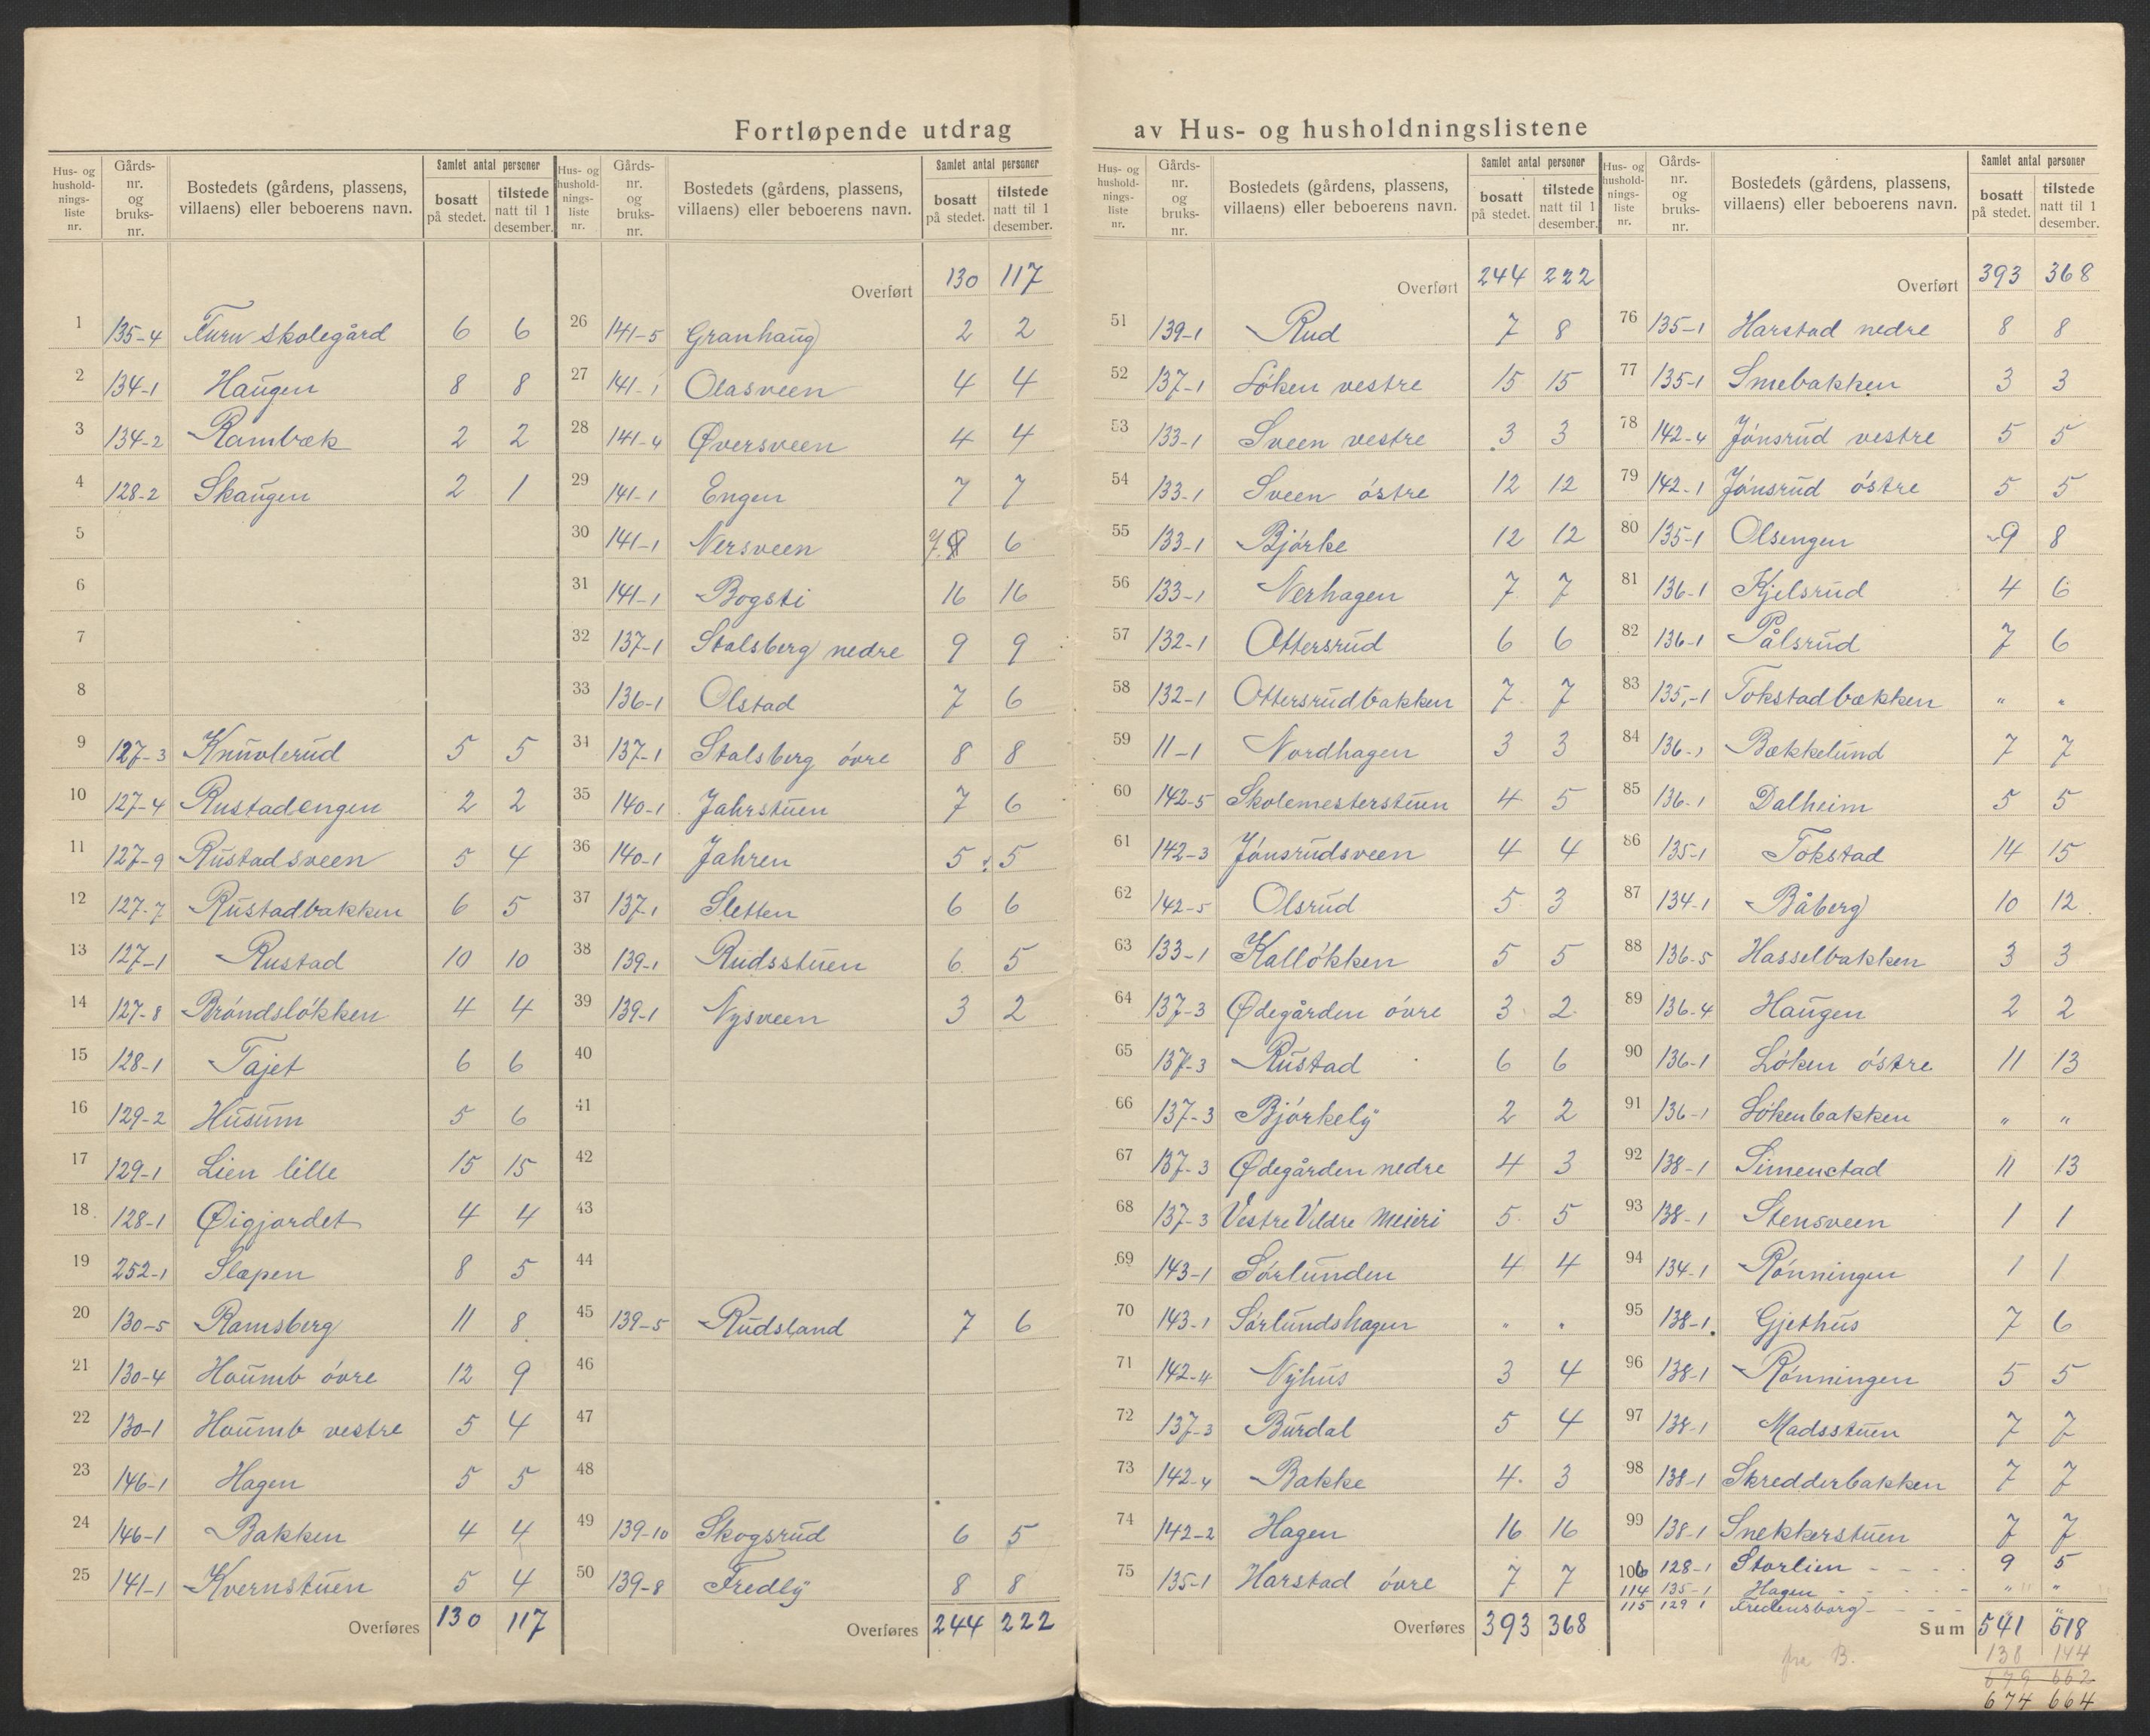 Fortløpende utdrag av Hus- og husholdningslistene
Hus- og husholdningsliste nr. | Gårdsnr. og bruksnr. | Bostedets (gårdens, plassens, villaens) eller beboerens navn. | Samlet antal personer | bosatt på stedet. | tilstede natt til 1 desember.
1 135-4 Furu skolegård 6 6
2 134-1 Haugen 8 8
3 134-2 Rambæk 2 2
4 128-2 Skaugen 2 1
5
6
7
8
9 127-3 Knuvlerud 5 5
10 127-4 Rustadengen 2 2
11 127-9 Rustadsveen 5 4
12 127-7 Rustadbakken 6 5
13 127-1 Rustad 10 10
14 127-8 Bröndslökken 4 4
15 128-1 Tajet 6 6
16 129-2 Husum 5 6
17 129-1 Lien lille 15 15
18 128-1 Øigjordet 4 4
19 252-1 Slapen 8 5
20 130-5 Ramsberg 11 8
21 130-4 Houmb övre 12 9
22 130-1 Houmb vestre 5 4
23 146-1 Hagen 5 5
24 146-1 Bakken 4 4
25 141-1 Kvernstuen 5 4
Overføres 130 117
Hus- og husholdningsliste nr. | Gårdsnr. og bruksnr. | Bostedets (gårdens, plassens, villaens) eller beboerens navn. | Samlet antal personer | bosatt på stedet. | tilstede natt til 1 desember.
Overført 130 117
26 141-5 Granhaug 2 2
27 141-1 Olasveen 4 4
28 141-4 Øversveen 4 4
29 141-1 Engen 7 7
30 141-1 Nersveen 7 8 6
31 141-1 Bogsti 16 16
32 137-1 Stalsberg nedre 9 9
33 136-1 Olstad 7 6
34 137-1 Stalsberg övre 8 8
35 140-1 Jahrstuen 7 6
36 140-1 Jahren 5 5
37 137-1 Sletten 6 6
38 139-1 Rudsstuen 6 5
39 139-1 Nysveen 3 2
40
41
42
43
44
45 139-5 Rudsland 7 6
46
47
48
49 139-10 Skogsrud 6 5
50 139-8 Fredly 8 8
Overføres 244 222
Hus- og husholdningsliste nr. | Gårdsnr. og bruksnr. | Bostedets (gårdens, plassens, villaens) eller beboerens navn. | Samlet antal personer | bosatt på stedet. | tilstede natt til 1 desember.
Overført 244 222
51 139-1 Rud 7 8
52 137-1 Löken vestre 15 15
53 133-1 Sveen vestre 3 3
54 133-1 Sveen östre 12 12
55 133-1 Björke 12 12
56 133-1 Nerhagen 7 7
57 132-1 Ottersrud 6 6
58 132-1 Ottersrudbakken 7 7
59 11-1 Nordhagen 3 3
60 142-5 Skolemesterstuen 4 5
61 142-3 Jönsrudsveen 4 4
62 142-5 Olsrud 5 3
63 133-1 Kallökken 5 5
64 137-3 Ødegården övre 3 2
65 137-3 Rustad 6 6
66 137-3 Björkely 2 2
67 137-3 Ødegården nedre 4 3
68 137-3 Vestre Vildre Meieri 5 5
69 143-1 Sörlunden 4 4
70 143-1 Sörlundshagen " "
71 142-4 Nyhus 3 4
72 137-3 Burdal 5 4
73 142-4 Bakke 4 3
74 142-2 Hagen 16 16
75 135-1 Harstad övre 7 7
Overføres 393 368
Hus- og husholdningsliste nr. | Gårdsnr. og bruksnr. | Bostedets (gårdens, plassens, villaens) eller beboerens navn. | Samlet antal personer | bosatt på stedet. | tilstede natt til 1 desember.
Overført 393 368
76 135-1 Harstad nedre 8 8
77 135-1 Smebakken 3 3
78 142-4 Jönsrud vestre 5 5
79 142-1 Jönsrud östre 5 5
80 135-1 Olsengen 9 8
81 136-1 Kjelsrud 4 6
82 136-1 Pålsrud 7 6
83 135-1 Tokstadbakken " "
84 136-1 Bækkelund 7 7
85 136-1 Dalheim 5 5
86 135-1 Tokstad 14 15
87 134-1 Båberg 10 12
88 136-5 Hasselbakken 3 3
89 136-4 Haugen 2 2
90 136-1 Löken östre 11 13
91 136-1 Lökenbakken " "
92 138-1 Simenstad 11 13
93 138-1 Stensveen 1 1
94 134-1 Rönningen 1 1
95 138-1 Gjethus 7 6
96 138-1 Rönningen 5 5
97 138-1 Madsstuen 7 7
98 138-1 Skredderbakken 7 7
99 138-1 Snekkerstuen 7 7
106 128-1 Storlien 9 5
114 135-1 Hagen " "
115 129 1 Fredensborg " "
Sum 541 518
fra B. 138 144
679 662
674 664